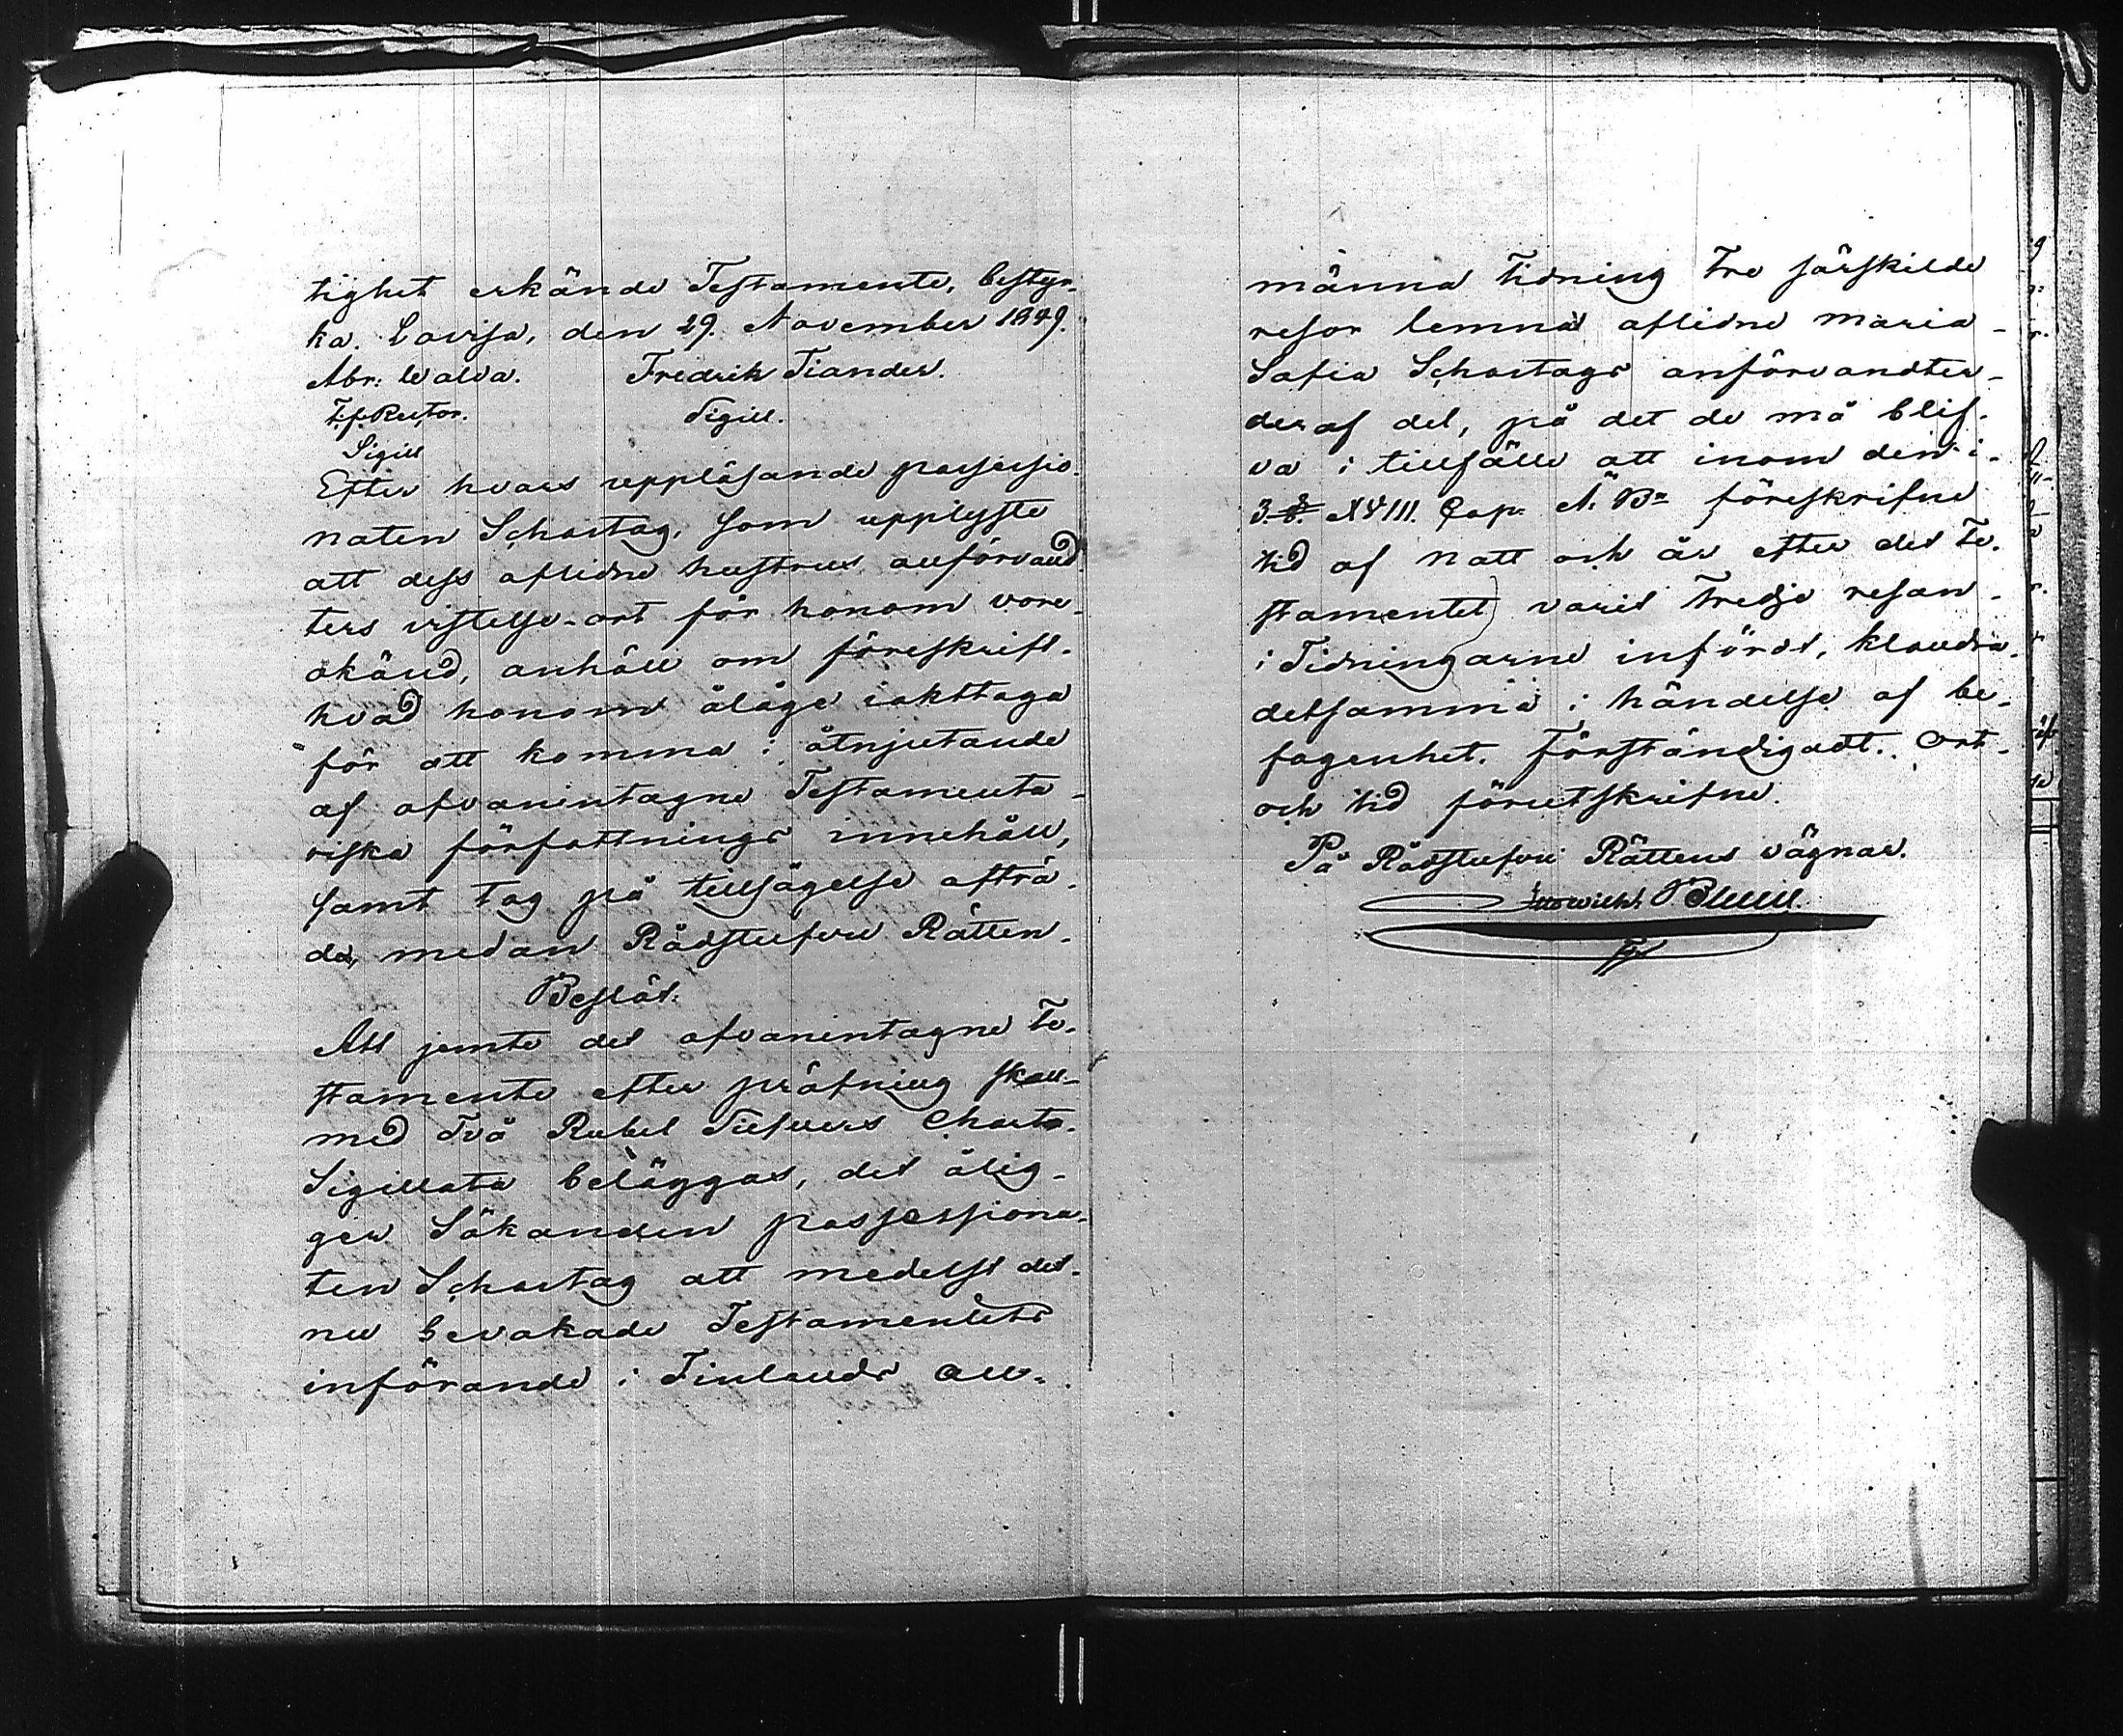 tighet erkände Testamente, bestyr-
ka. Lovisa, den 29. November 1849.
Abr: Walda. Fredrik Tiander.
T.f. Rector. Sigill.
Sigill
Efter hvars uppläsande possessio-
naten Schartag, som upplyste
att dess aflidne hustrus anförvand-
ters vistelse-ort för honom vore
okänd, anhöll om föreskrift
hvad honom ålåge iakttaga
för att komma i åtnjutande
af ofvanintagne Testamenta-
riska författnings innehåll,
samt tog på tillsägelse afträ-
de, medan Rådstufvu Rätten
Beslöt:
Att jemte det ofvanintagne Te-
stamente efter pröfning skall
med Två Rubel Silfvers Charta
Sigillata beläggas, det ålig-
ger Sökanden possessiona-
ten Schartag att medelst det
nu bevakade Testamentets
införande i Finlands All-
männa Tidning tre särskilde
resor lemna aflidne Maria
Sofia Schartags anförvandter
deraf del, på det de må blif-
va i tillfälle att inom den i
3. §. XVIII. Cap. Ä. B. föreskrifne
tid af natt och år efter det Te-
stamentet varit tredje resan
i Tidningarne infördt, klandra
detsamma i händelse af be-
fogenhet. Förståndigadt. Ort
och tid förutskrifne.
På Rådstufvu Rättens vägnar.